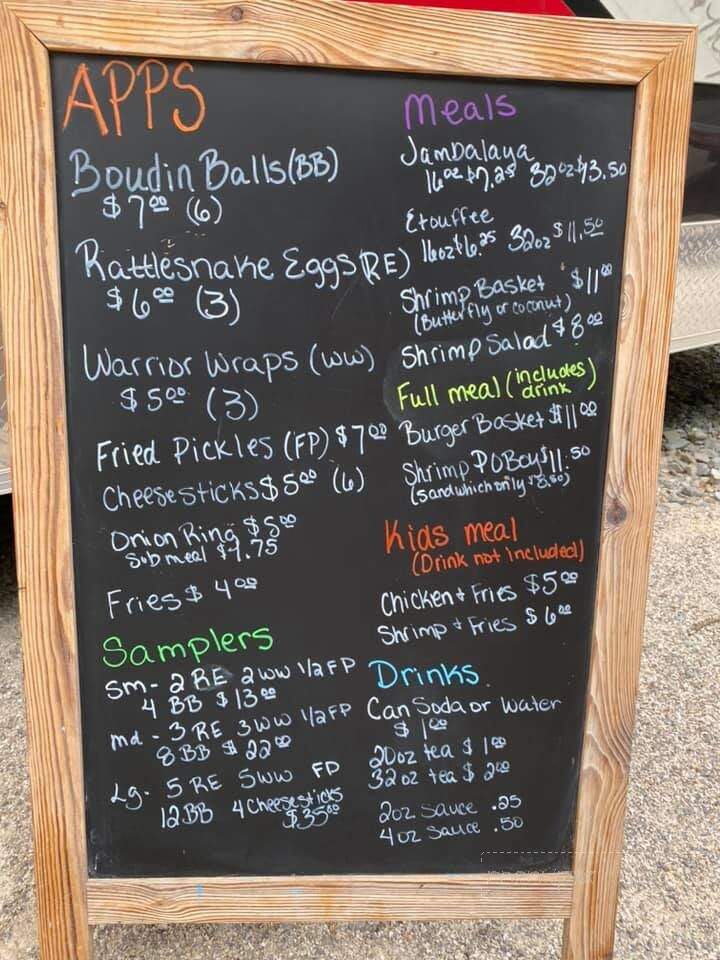 APPS
Boudin Balls (BB)
$7.00 (6)
Rattlesnake Eggs (RE)
$6.00 (3)
Warrior Wraps (WW)
$5.00 (3)
Fried Pickles (FP) $7.00
Cheesesticks $5.00 (6)
Onion Ring $5.00
Sub meal $1.75
Fries $4.00
Samplers
Sm - 2 RE 2 WW 1/2 FP
4 BB $13.00
md - 3 RE 3 WW 1/2 FP
8 BB $22.00
Lg. 5 RE 5 WW FP
12 BB 4 Cheesesticks
$35.00
Meals
Jambalaya
16oz $7.25 32oz $13.50
Etouffee
16oz $6.25 32oz $11.50
Shrimp Basket $11.00
(Butterfly or coconut)
Shrimp Salad $8.00
Full meal (includes
drink)
Burger Basket $11.00
Shrimp POBoy $11.50
(Sandwich only $8.50)
Kids meal
(Drink not included)
Chicken + Fries $5.00
Shrimp + Fries $6.00
Drinks
Can Soda or Water
$1.00
20oz tea $1.00
32oz tea $2.00
2oz sauce .25
4oz sauce .50